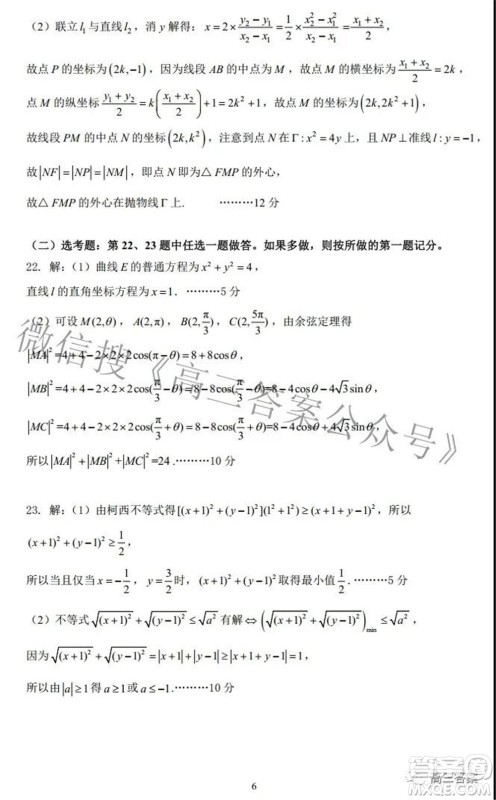 （2）联立 l₁ 与直线 l₂，消 y 解得：x = 2×(y₂−y₁)/(x₂−x₁) = (1/2)×(x₂²−x₁²)/(x₂−x₁) = (x₁+x₂)/2，
故点 P 的坐标为 (2k,−1)，因为线段 AB 的中点为 M，故点 M 的横坐标为 (x₁+x₂)/2 = 2k，
点 M 的纵坐标 (y₁+y₂)/2 = k((x₁+x₂)/2)+1 = 2k²+1，故点 M 的坐标为 (2k,2k²+1)，
故线段 PM 的中点 N 的坐标 (2k,k²)，注意到点 N 在 Γ: x² = 4y 上，且 NP⊥准线 l: y = −1，
故 |NF| = |NP| = |NM|，即点 N 即为△FMP 的外心，
故△FMP 的外心在抛物线 Γ 上. ………12 分
（二）选考题：第 22、23 题中任选一题做答。如果多做，则按所做的第一题记分。
22. 解：（1）曲线 E 的普通方程为 x²+y² = 4，
直线 l 的直角坐标方程为 x = 1. ………5 分
（2）可设 M(2,θ)，A(2,π)，B(2,π/3)，C(2,5π/3)，由余弦定理得
|MA|² = 4+4−2×2×2cos(π−θ) = 8+8cosθ，
|MB|² = 4+4−2×2×2cos(π/3−θ) = 8−8cos(π/3−θ) = 8−4cosθ−4√3sinθ，
|MC|² = 4+4−2×2×2cos(π/3+θ) = 8−8cos(π/3+θ) = 8−4cosθ+4√3sinθ，
所以 |MA|²+|MB|²+|MC|² = 24. ………10 分
23. 解：（1）由柯西不等式得 [(x+1)²+(y−1)²](1²+1²) ≥ (x+1+y−1)²，所以
(x+1)²+(y−1)² ≥ 1/2，
所以当且仅当 x = −1/2，y = 3/2 时，(x+1)²+(y−1)² 取得最小值 1/2. ………5 分
（2）不等式 √(x+1)²+√(y−1)² ≤ √a² 有解⇔(√(x+1)²+√(y−1)²)min ≤ √a²，
因为 √(x+1)²+√(y−1)² = |x+1|+|y−1| ≥ |x+1+y−1| = 1，
所以由 |a| ≥ 1 得 a ≥ 1 或 a ≤ −1. ………10 分
微信搜《高三答案公众号》
答案圈
高三答案
MXQE.COM
6